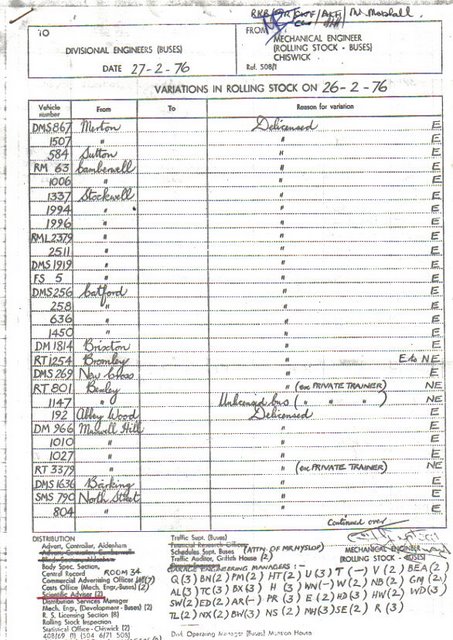 TO
DIVISIONAL ENGINEERS (BUSES)
DATE 27-2-76
FROM
MECHANICAL ENGINEER
(ROLLING STOCK - BUSES)
CHISWICK
Ref. 508/1
VARIATIONS IN ROLLING STOCK ON 26-2-76
Vehicle number From To Reason for variation
DMS 867 Merton Delicensed E
1507 " " E
584 Sutton " E
RM 63 Camberwell " E
1006 " " E
1337 Stockwell " E
1994 " " E
1996 " " E
RML 2379 " " E
2511 " " E
DMS 1919 " " E
FS 5 " " E
DMS 256 Catford " E
258 " " E
636 " " E
1450 " " E
DM 1814 Brixton " E
RT 1254 Bromley " E to NE
DMS 269 New Cross " E
RT 801 Bexley " (ex PRIVATE TRAINER) NE
1147 " Unlicensed bus ( " " " ) NE
192 Abbey Wood Delicensed E
DM 966 Muswell Hill " E
1010 " " E
1027 " " E
RT 3379 " " (ex PRIVATE TRAINER) NE
DMS 1636 Barking " E
SMS 790 North Street " E
804 " " E
Continued over
DISTRIBUTION
Advert. Controller, Aldenham
Body Spec. Section,
Central Record ROOM 34
Commercial Advertising Officer
Costs Office (Mech. Engr.-Buses) (2)
Scientific Adviser (2)
Distribution Services Manager
Mech. Engr. (Development - Buses) (2)
R. S. Licensing Section (8)
Rolling Stock Inspection
Statistical Office (2)
Traffic Supt. (Buses)
Schedules Supt. (Buses) (ATTN. OF MR HYSLOP)
Traffic Auditor, Griffith House (2)
GARAGE ENGINEERING MANAGERS :-
MECHANICAL ENGINEER
(ROLLING STOCK - BUSES)
Q(3) BN(2) PM(2) HT(2) U(3) T(-) V(2) BEA(2)
AL(3) TC(3) BX(3) H(3) WN(-) W(2) NB(2) GM(2)
SW(2) ED(2) AR(-) PR(3) E(2) HD(3) HW(2) WD(3)
TL(2) NX(2) BW(3) NS(2) NH(3) SE(2) R(3)